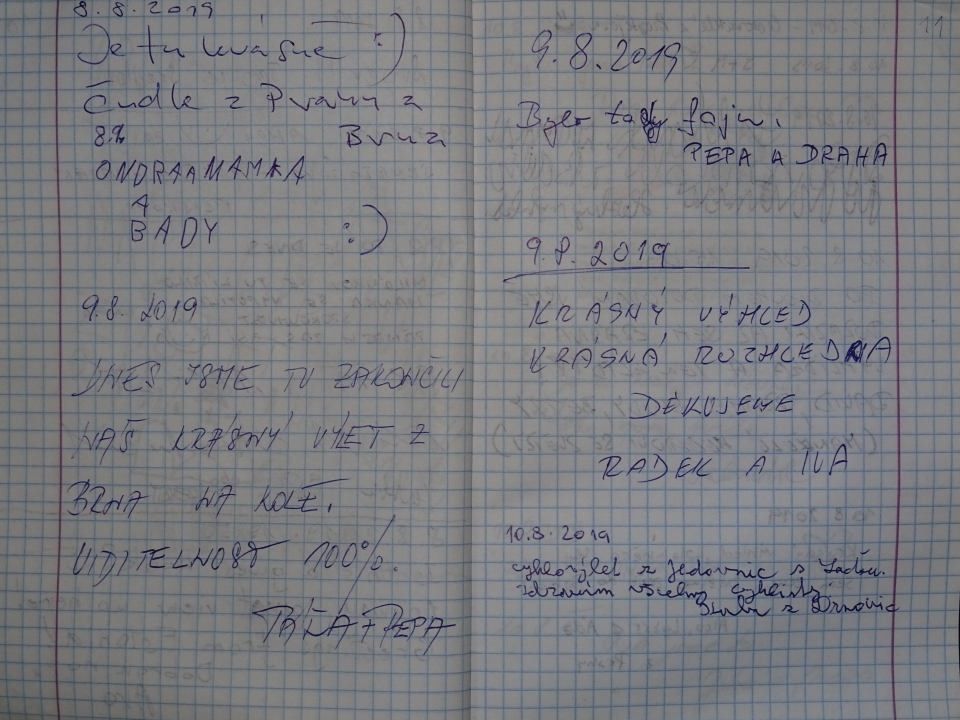 8.8.2019
Je tu krásně :)
Čudle z Prahy a
8.8. Brna
ONDRA A MAMKA
A
BADY :)
9.8. 2019
DNES JSME TU ZAKONČILI
NÁŠ KRÁSNÝ VÝLET Z
BRNA NA KOLE.
VIDITELNOST 100%.
TÁŇA + PEPA
11
9.8.2019
Bylo tady fajn.
PEPA A DRAHA
9.8.2019
KRÁSNÝ VÝHLED
KRÁSNÁ ROZHLEDNA
DĚKUJEME
RADEK A IVA
10.8.2019
cyklovýlet z Jedovnic s Laďou.
zdravím všechny cyklisty
z Drnovic